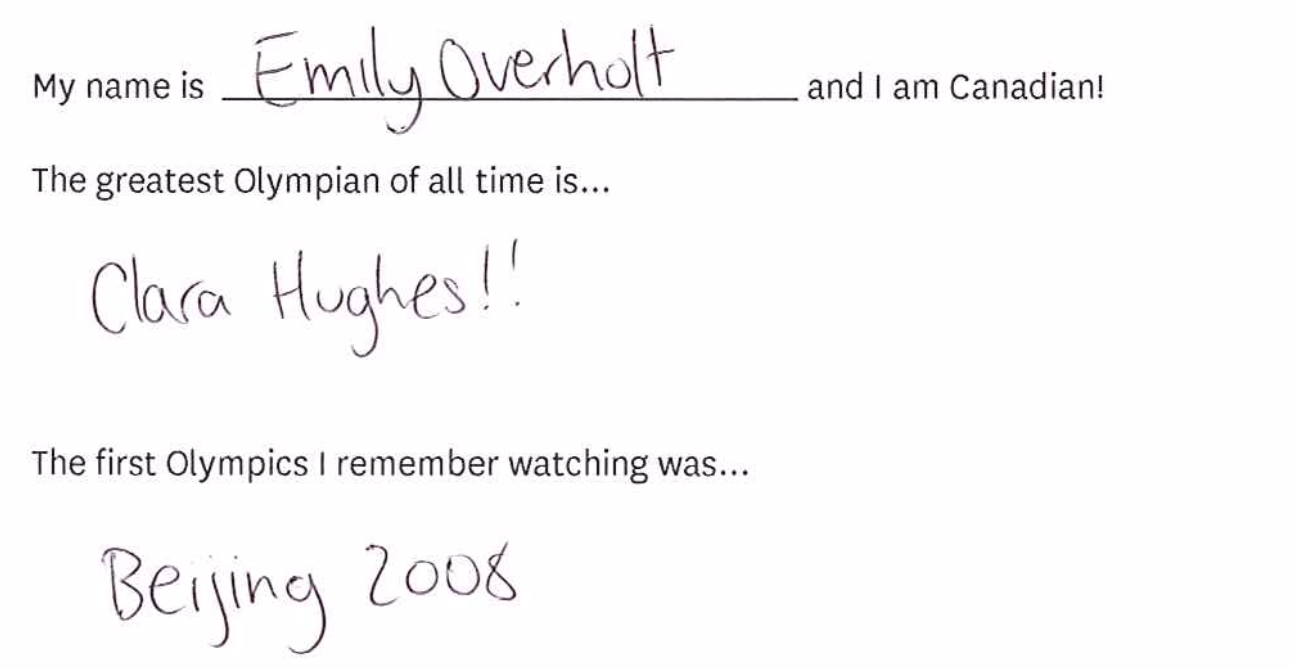 My name is Emily Overholt and I am Canadian!
The greatest Olympian of all time is...
Clara Hughes!!
The first Olympics I remember watching was...
Beijing 2008